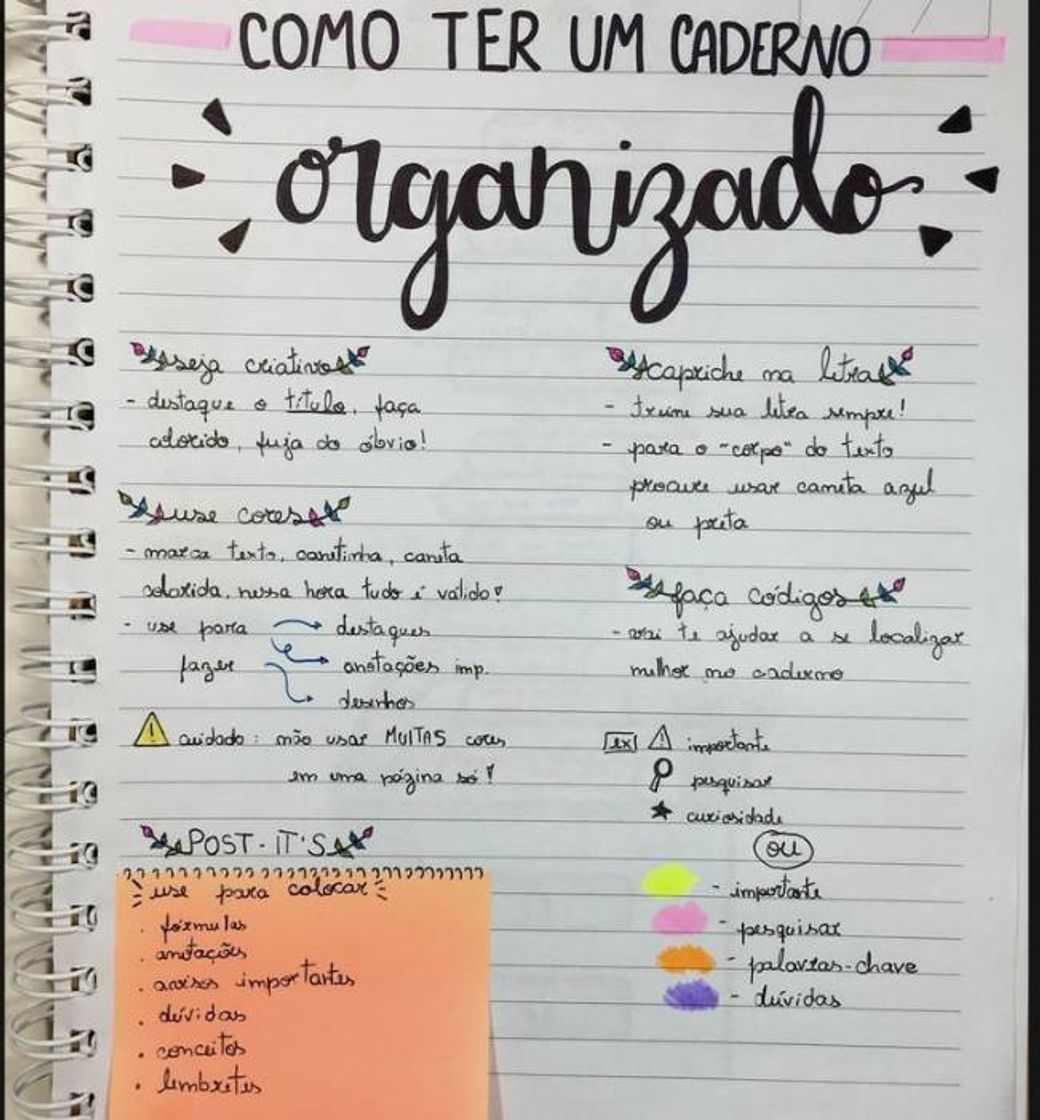 COMO TER UM CADERNO
organizado
seja criativo
- destaque o título, faça
colorido, fuja do óbvio!
use cores
- marca texto, canetinha, caneta
colorida, nessa hora tudo é válido!
- use para
fazer
destaques
anotações imp.
desenhos
cuidado: não usar MUITAS cores
em uma página só!
POST-IT'S
use para colocar
. fórmulas
. anotações
. avisos importantes
. dúvidas
. conceitos
. lembretes
capriche na letra
- treine sua letra sempre!
- para o "corpo" do texto
procure usar caneta azul
ou preta
faça códigos
- vai te ajudar a se localizar
melhor no caderno
ex importante
pesquisar
curiosidade
ou
- importante
- pesquisar
- palavras-chave
- dúvidas